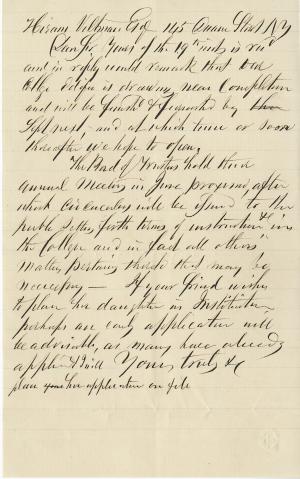 Hiram Veltman Esq 145 Duane Street N Y
Dear Sir Yours of the 19th inst, is recd
and in reply would remark that our
College Edifice is drawing near Completion
and will be finished & furnished by
Sept next, and at which time or soon
thereafter we hope to open.
The Board of Trustees hold their
annual Meeting in June proximo, after
which Circulars will be issued to the
public setting forth terms of instruction & in
the College and in fact all others
matters pertaining thereto that may be
necessary — If your friend wishes
to place her daughter in Institution,
perhaps an early application will
be advisable, as many have already
applied & I will Yours, truly &c
place her application on file